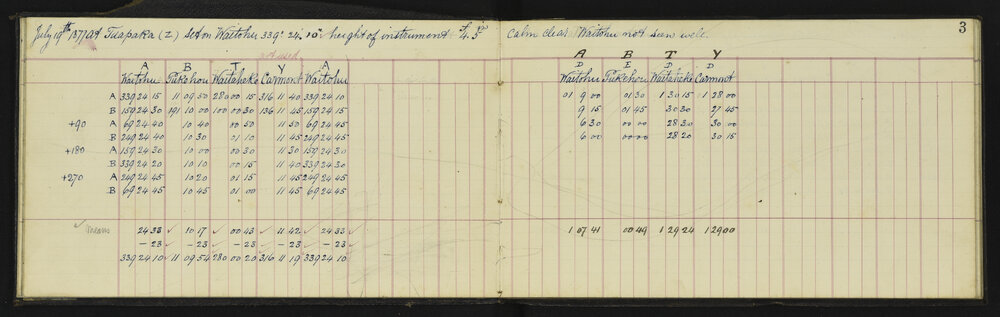 July 19th 1877 at Tuapaka (Z) Set on Waitohu 339° 24' 10" height of instrument 4. 5
A B T Y A
Waitohu Pukehou Waitaheke Carmont Waitohu
A 339 24 15 11 09 50 280 00 15 316 11 40 339 24 10
B 159 24 30 191 10 00 100 00 30 136 11 45 159 24 15
+90 A 69 24 40 10 40 00 50 11 50 69 24 45
B 249 24 40 10 30 01 10 11 45 249 24 45
+180 A 159 24 30 10 00 00 30 11 30 159 24 30
B 339 24 20 10 10 00 15 11 40 339 24 30
+270 A 249 24 45 10 20 01 15 11 45 249 24 45
B 69 24 45 10 45 01 00 11 45 69 24 45
Means 24 33 10 17 00 43 11 42 24 33
- 23 - 23 - 23 - 23 - 23
339 24 10 11 09 54 280 00 20 316 11 19 339 24 10
Calm clear Waitohu not seen well. 3
A B T Y
D E D D
Waitohu Pukehou Waitaheke Carmont
01 9 00 01 30 1 30 15 1 28 00
9 15 01 45 30 30 27 45
6 30 00 00 28 30 30 00
6 00 00 00 28 20 30 15
1 07 41 00 49 1 29 24 1 29 00